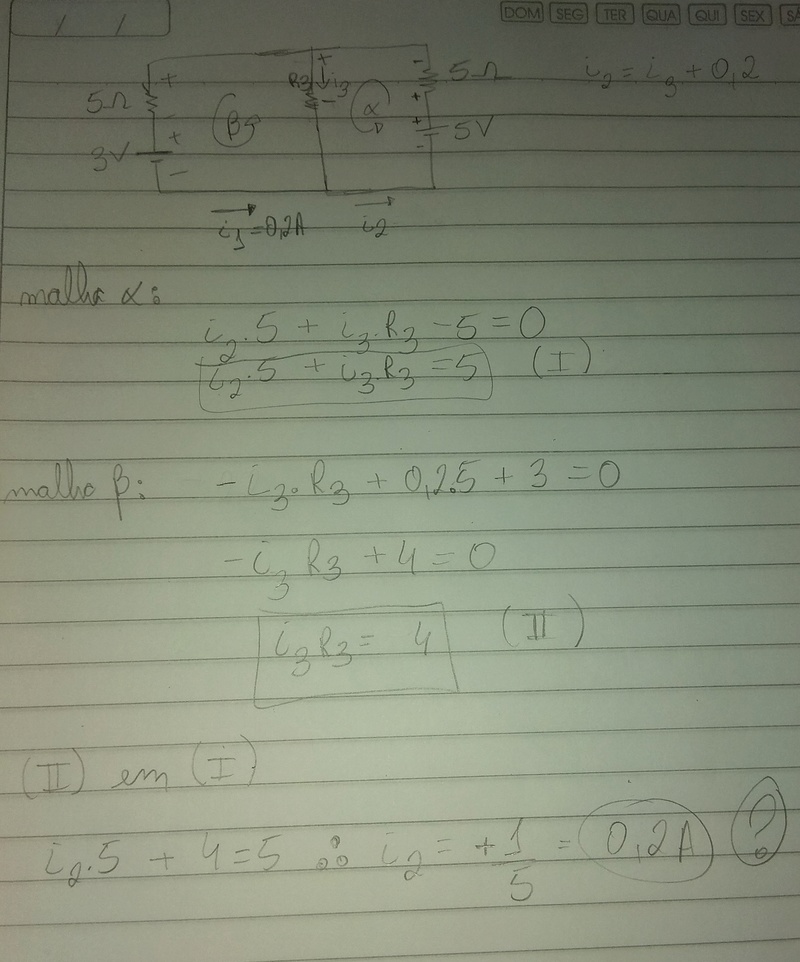 / /
DOM SEG TER QUA QUI SEX SÁ
i₂ = i₃ + 0,2
+ + -
5Ω R3 i3 - 5Ω
β α +
+ + 5V
3V - -
i₁=0,2A i₂
malha α:
i₂.5 + i₃.R₃ -5 = 0
i₂.5 + i₃.R₃ = 5 (I)
malha β: -i₃.R₃ + 0,2.5 + 3 = 0
-i₃R₃ + 4 = 0
i₃R₃ = 4 (II)
(II) em (I)
i₂.5 + 4 = 5 ∴ i₂ = +1/5 = 0,2A ?